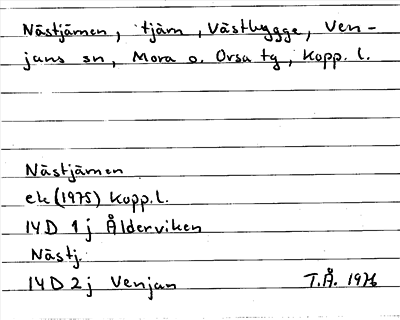 Nästjärnen, tjärn, Västbygge, Ven-
jans sn, Mora o. Orsa tg, Kopp. l.
Nästjärnen
ek (1975) Kopp.l.
14D 1j Ålderviken
Nästj.
14D 2j Venjan T.Å. 1976